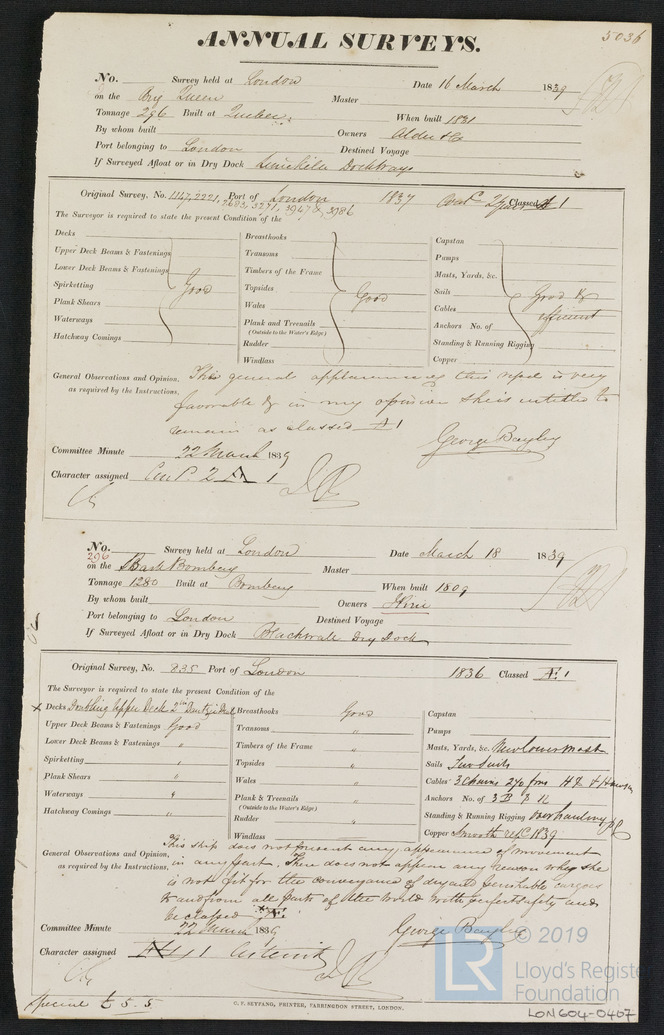 5036
ANNUAL SURVEYS.
No. Survey held at London Date 16 March 1839
on the Brig Queen Master
Tonnage 296 Built at Quebec When built 1831
By whom built Owners Alder & Co
Port belonging to London Destined Voyage
If Surveyed Afloat or in Dry Dock Limekiln Dockways
Original Survey, No. 1147, 2221, Port of London 1837 Classed A 1
2683, 3271, 3947 & 3986
The Surveyor is required to state the present Condition of the
Decks Breasthooks Capstan
Upper Deck Beams & Fastenings Transoms Pumps
Lower Deck Beams & Fastenings Timbers of the Frame Masts, Yards, &c.
Spirketting Good Topsides Good Sails Good &
Plank Shears Wales Cables efficient
Waterways Plank and Treenails Anchors No. of
(Outside to the Water's Edge)
Hatchway Comings Rudder Standing & Running Rigging
Windlass Copper
General Observations and Opinion, The general appearance of this vessel is very
as required by the Instructions. favorable & in my opinion she is entitled to
remain as classed A 1
George Bayley
Committee Minute 22 March 1839
Character assigned Cont. 2 A 1
No. Survey held at London Date March 18 1839
296
on the Bark Bombay Master
Tonnage 1280 Built at Bombay When built 1809
By whom built Owners
Port belonging to London Destined Voyage
If Surveyed Afloat or in Dry Dock Blackwall Dry Dock
Original Survey, No. 835 Port of London 1836 Classed Æ 1
The Surveyor is required to state the present Condition of the
x Decks Doubling Upper Deck 2 in Breasthooks Good Capstan
Upper Deck Beams & Fastenings Good Transoms " Pumps
Lower Deck Beams & Fastenings " Timbers of the Frame " Masts, Yards, &c. New lower mast
Spirketting " Topsides " Sails Two suits
Plank Shears " Wales " Cables 3 Chains 270 fms
Waterways " Plank & Treenails " Anchors No. of 3 B
(Outside to the Water's Edge)
Hatchway Comings " Rudder " Standing & Running Rigging overhauling
Windlass Copper Smooth 1839
General Observations and Opinion, This ship does not present any appearance of movement
as required by the Instructions, in any part. There does not appear any reason why she
is not fit for the conveyance of dry and perishable cargoes
to and from all parts of the World with perfect safety and
be classed Æ 1
Committee Minute 22 March 1839 George Bayley
Character assigned Æ 1
Special £5.5
C. F. SEYFANG, PRINTER, FARRINGDON STREET, LONDON.
LR © 2019
Lloyd's Register
Foundation
LON604-0407